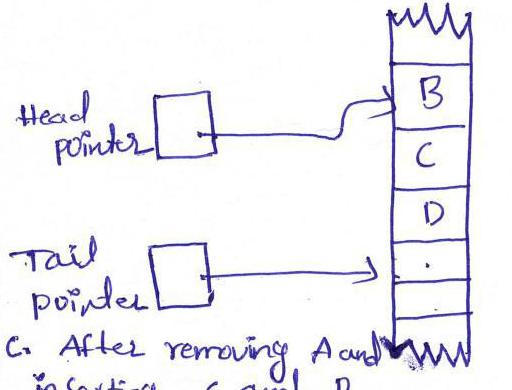 B
Head
pointer
C
D
Tail
pointer
C. After removing A and
inserting C and D